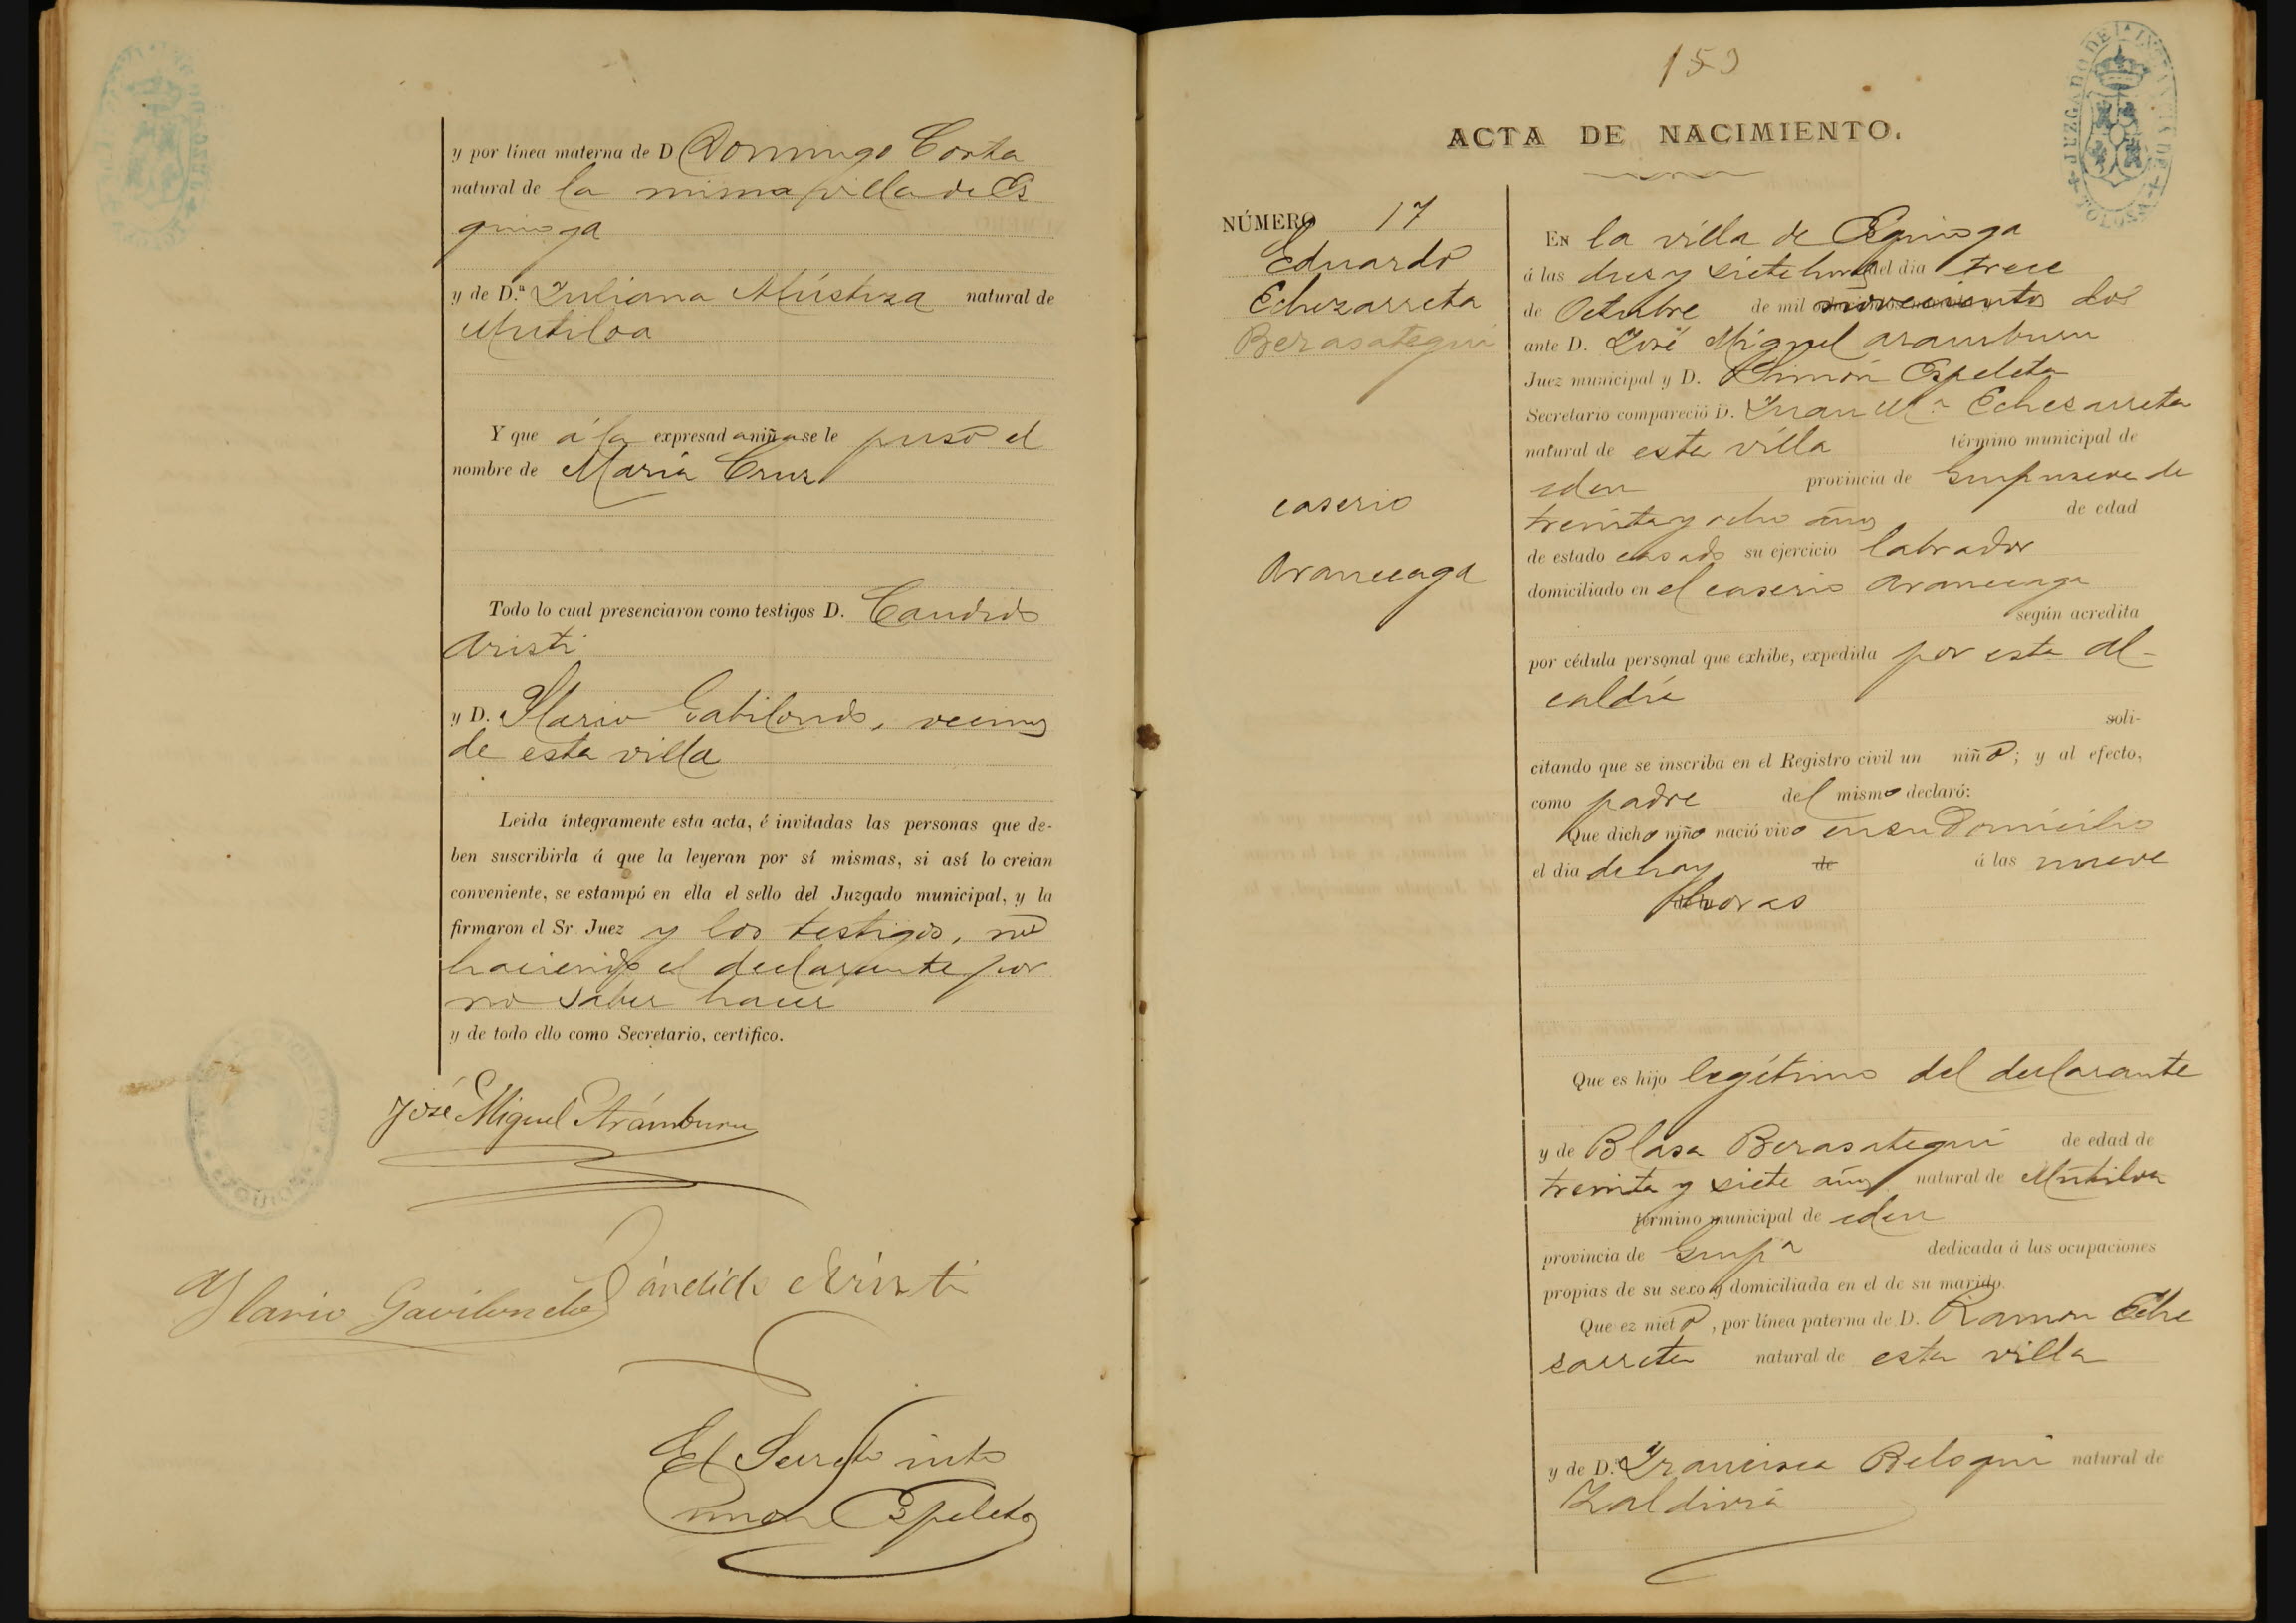 y por línea materna de D Domingo Corta
natural de la misma villa de Ez
quioga
y de D.ª Juliana Múxtiza natural de
Mutiloa
Y que á la expresada niña se le puso el
nombre de María Cruz
Todo lo cual presenciaron como testigos D. Candido
Aristi
y D. Ylario Gabilondo, vecinos
de esta villa
Leida íntegramente esta acta, é invitadas las personas que de-
ben suscribirla á que la leyeran por sí mismas, si así lo creian
conveniente, se estampó en ella el sello del Juzgado municipal, y la
firmaron el Sr. Juez y los testigos, no
haciendo el declarante por
no saber hacer
y de todo ello como Secretario, certifico.
José Miguel Arámburu
Cándido Aristi
Ylario Gavilondo
El Secret.º int.º
Simon Espeleta
159
JUZGADO DE 1.ª INSTANCIA DE TOLOSA
ACTA DE NACIMIENTO.
NÚMERO 17
Eduardo
Echezarreta
Berasategui
caserio
Aranceaga
En la villa de Ezquioga
á las dies y siete horas del dia trece
de Octubre de mil novecientos dos
ante D. José Miguel Aramburu
Juez municipal y D. Simón Espeleta
Secretario compareció D. Juan M.ª Echezarreta
natural de esta villa término municipal de
idem provincia de Guipuzcoa de
treinta y ocho años de edad
de estado casado su ejercicio labrador
domiciliado en el caserio Aranceaga
según acredita
por cédula personal que exhibe, expedida por esta Al-
caldía
soli-
citando que se inscriba en el Registro civil un niño; y al efecto,
como padre del mismo declaró:
Que dicho niño nació vivo en su Domicilio
el día de hoy de á las nueve
horas
Que es hijo legítimo del declarante
y de Blasa Berasategui de edad de
treinta y siete años natural de Mutiloa
término municipal de idem
provincia de Guip.ª dedicada á las ocupaciones
propias de su sexo y domiciliada en el de su marido.
Que ez nieto, por línea paterna de D. Ramon Eche
zarreta natural de esta villa
y de D.ª Francisca Beloqui natural de
Zaldivia